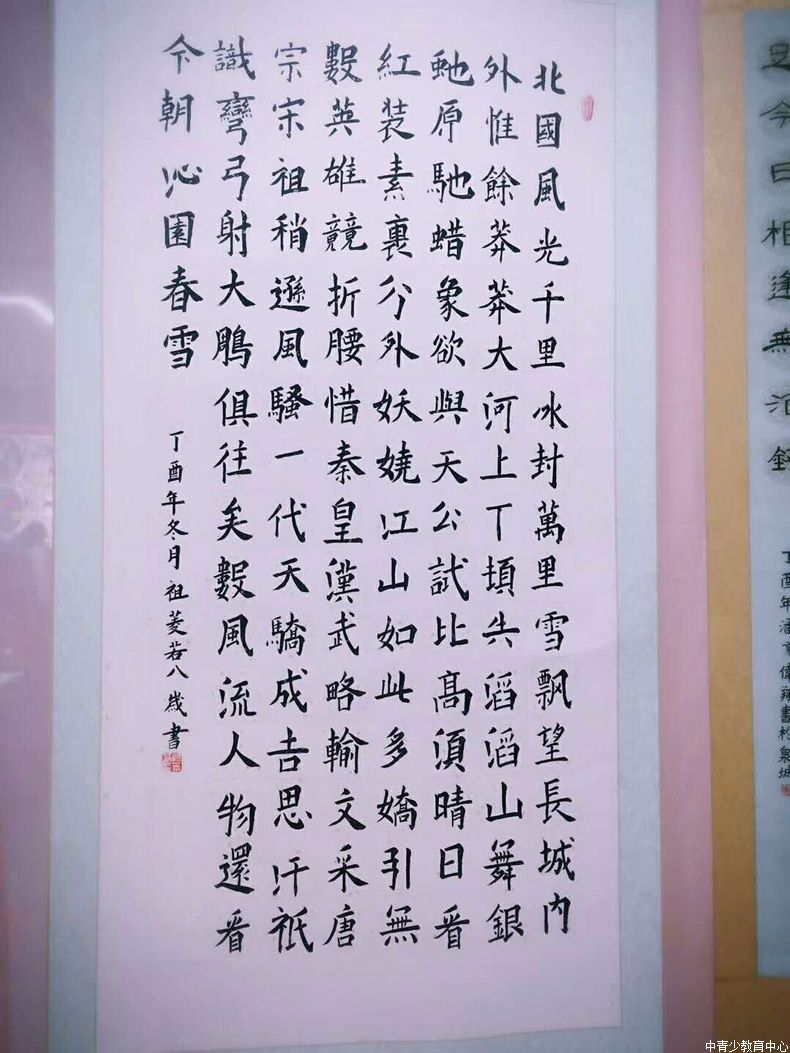 北國風光千里冰封萬里雪飄望長城内
外惟餘莽莽大河上丅頓失滔滔山舞銀
虵原馳蜡象欲與天公試比高須晴日看
紅装素裹分外妖嬈江山如此多嬌引無
數英雄競折腰惜秦皇漢武略輸文采唐
宗宋祖稍遜風騷一代天驕成吉思汗祇
識彎弓射大鵰俱往矣數風流人物還看
今朝 沁園春雪
丁酉年冬月祖菱若八歲書
今日相逢無酒錢
丁酉年潘書於泉城
中青少教育中心